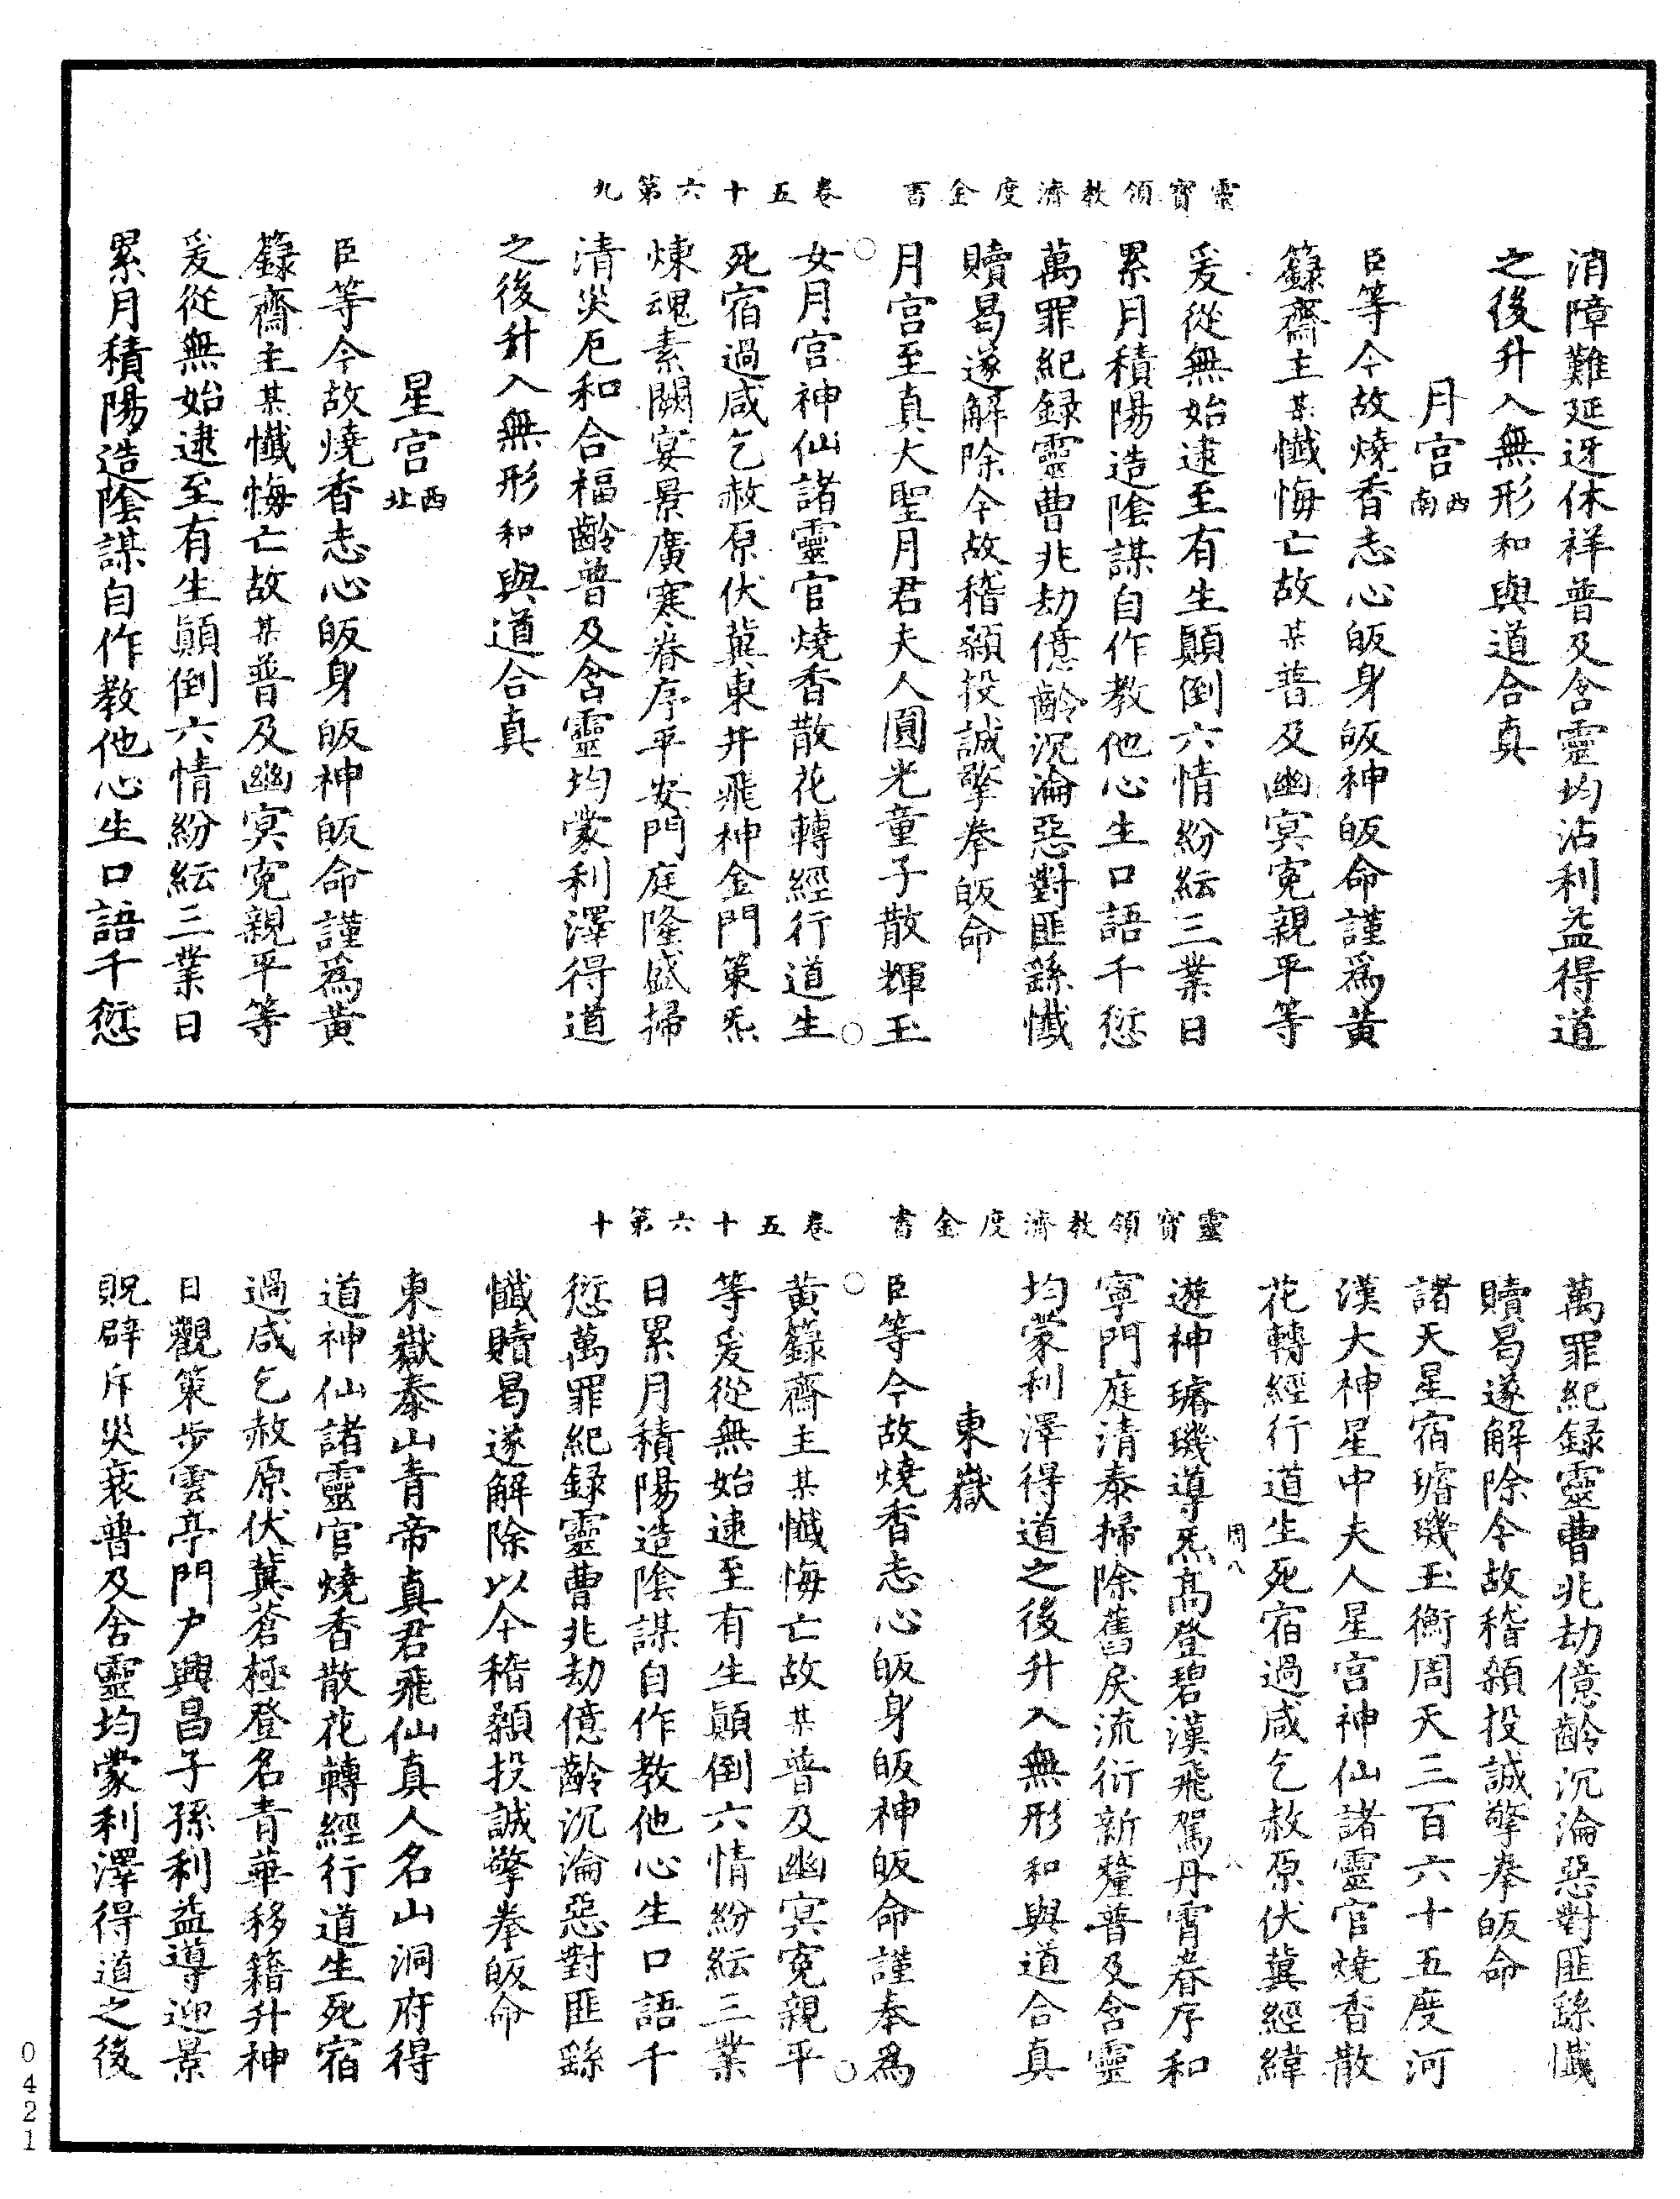 靈寶領教濟度金書　卷五十六第九
消障難延迓休祥普及含靈均沾利益得道
之後升入無形和與道合真
月宮西南
臣等今故燒香志心皈身皈神皈命謹為黃
籙齋主某懺悔亡故某普及幽冥寃親平等
爰從無始逮至有生顛倒六情紛紜三業日
累月積陽造陰謀自作教他心生口語千愆
萬罪紀録靈曹兆劫億齡沉淪惡對匪繇懺
贖曷遂解除今故稽顙投誠擎拳皈命
月宮至真大聖月君夫人圓光童子散輝玉
女月宮神仙諸靈官燒香散花轉經行道生
死宿過咸乞赦原伏冀東井飛神金門策炁
煉魂素闕宴景廣寒眷序平安門庭隆盛掃
清災厄和合福齡普及含靈均蒙利澤得道
之後升入無形和與道合真
星宮西北
臣等今故燒香志心皈身皈神皈命謹為黃
籙齋主某懺悔亡故某普及幽冥寃親平等
爰從無始逮至有生顛倒六情紛紜三業日
累月積陽造陰謀自作教他心生口語千愆
靈寶領教濟度金書　卷五十六第十
萬罪紀録靈曹兆劫億齡沉淪惡對匪繇懺
贖曷遂解除今故稽顙投誠擎拳皈命
諸天星宿璿璣玉衡周天三百六十五度河
漢大神星中夫人星宮神仙諸靈官燒香散
花轉經行道生死宿過咸乞赦原伏冀經緯
周八　八
遊神璿璣導炁高登碧漢飛駕丹霄眷序和
寧門庭清泰掃除舊戾流衍新釐普及含靈
均蒙利澤得道之後升入無形和與道合真
東嶽
臣等今故燒香志心皈身皈神皈命謹奉為
黃籙齋主某懺悔亡故某普及幽冥寃親平
等爰從無始逮至有生顛倒六情紛紜三業
日累月積陽造陰謀自作教他心生口語千
愆萬罪紀録靈曹兆劫億齡沉淪惡對匪繇
懺贖曷遂解除以今稽顙投誠擎拳皈命
東嶽泰山青帝真君飛仙真人名山洞府得
道神仙諸靈官燒香散花轉經行道生死宿
過咸乞赦原伏冀蒼極登名青華移籍升神
日觀策步雲亭門户興昌子孫利益導迎景
貺辟斥災衺普及含靈均蒙利澤得道之後
0421